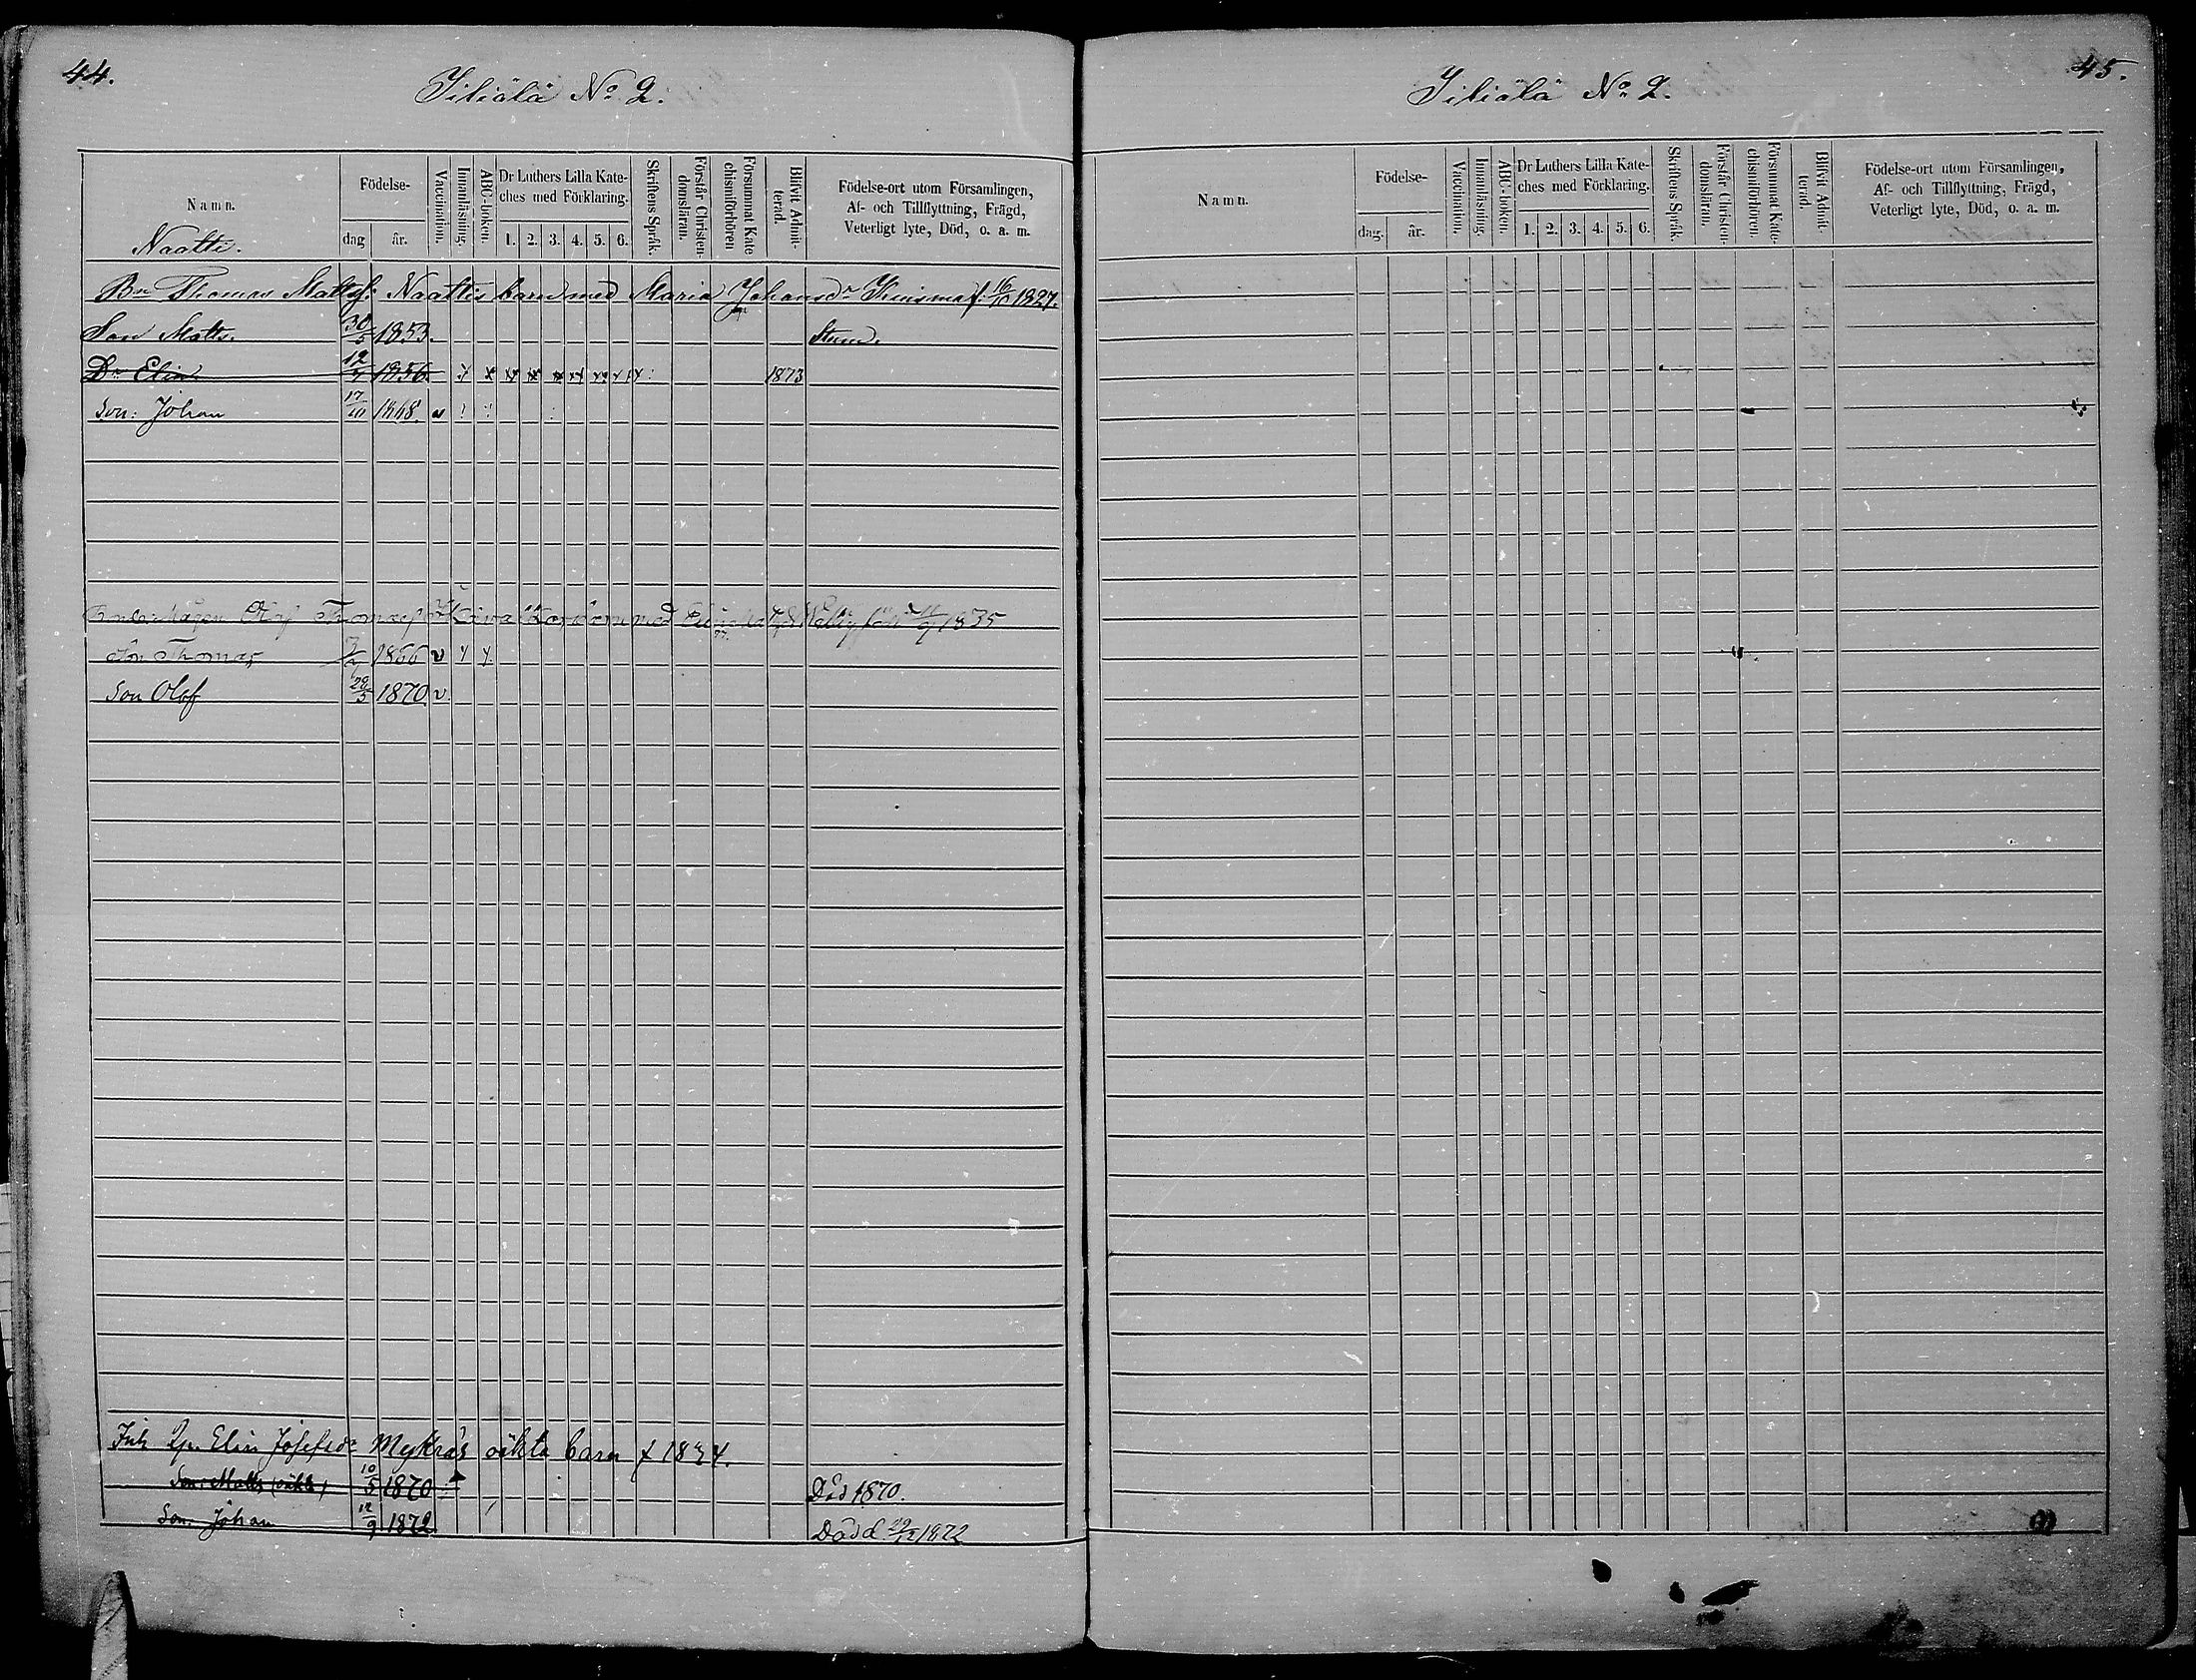 44.
Jiliälä No 2.
Namn.
Födelse-
dag
år.
Vaccination.
Innanläsning.
ABC-boken.
Dr Luthers Lilla Kate-
ches med Förklaring.
1. 2. 3. 4. 5. 6.
Skriftens Språk.
Förstår Christen-
domsläran.
Försummat Kate
chismiförhören
Blifvit Admit-
terad.
Födelse-ort utom Församlingen,
Af- och Tillflyttning, Frägd,
Veterligt lyte, Död, o. a. m.
Naatti.
Bn Thomas Mattsf: Naattis barn med Maria Johansdr f. 16/10 1827.
Son Matts. 30/5 1853. Stum.
Dr Elin 12/7 1856. 1873
Son: Johan 17/10 1868. v
Olof Thomasf med 1835
Son Thomas 1866 v
Son Olof 29/5 1870 v
Inh Elin Josefsdr Mykrä's oäkta barn f 1834.
Son: Matts (oäkta) 10/5 1870 Död 1870.
Son: Johan 12/9 1872 Död d. 1872
45.
Jiliälä No 2.
Namn.
Födelse-
dag.
år.
Vaccination.
Innanläsning.
ABC-boken.
Dr Luthers Lilla Kate-
ches med Förklaring.
1. 2. 3. 4. 5. 6.
Skriftens Språk.
Förstår Christen-
domsläran.
Försummat Kate-
chismiförhören.
Blifvit Admit-
terad.
Födelse-ort utom Församlingen,
Af- och Tillflyttning, Frägd,
Veterligt lyte, Död, o. a. m.